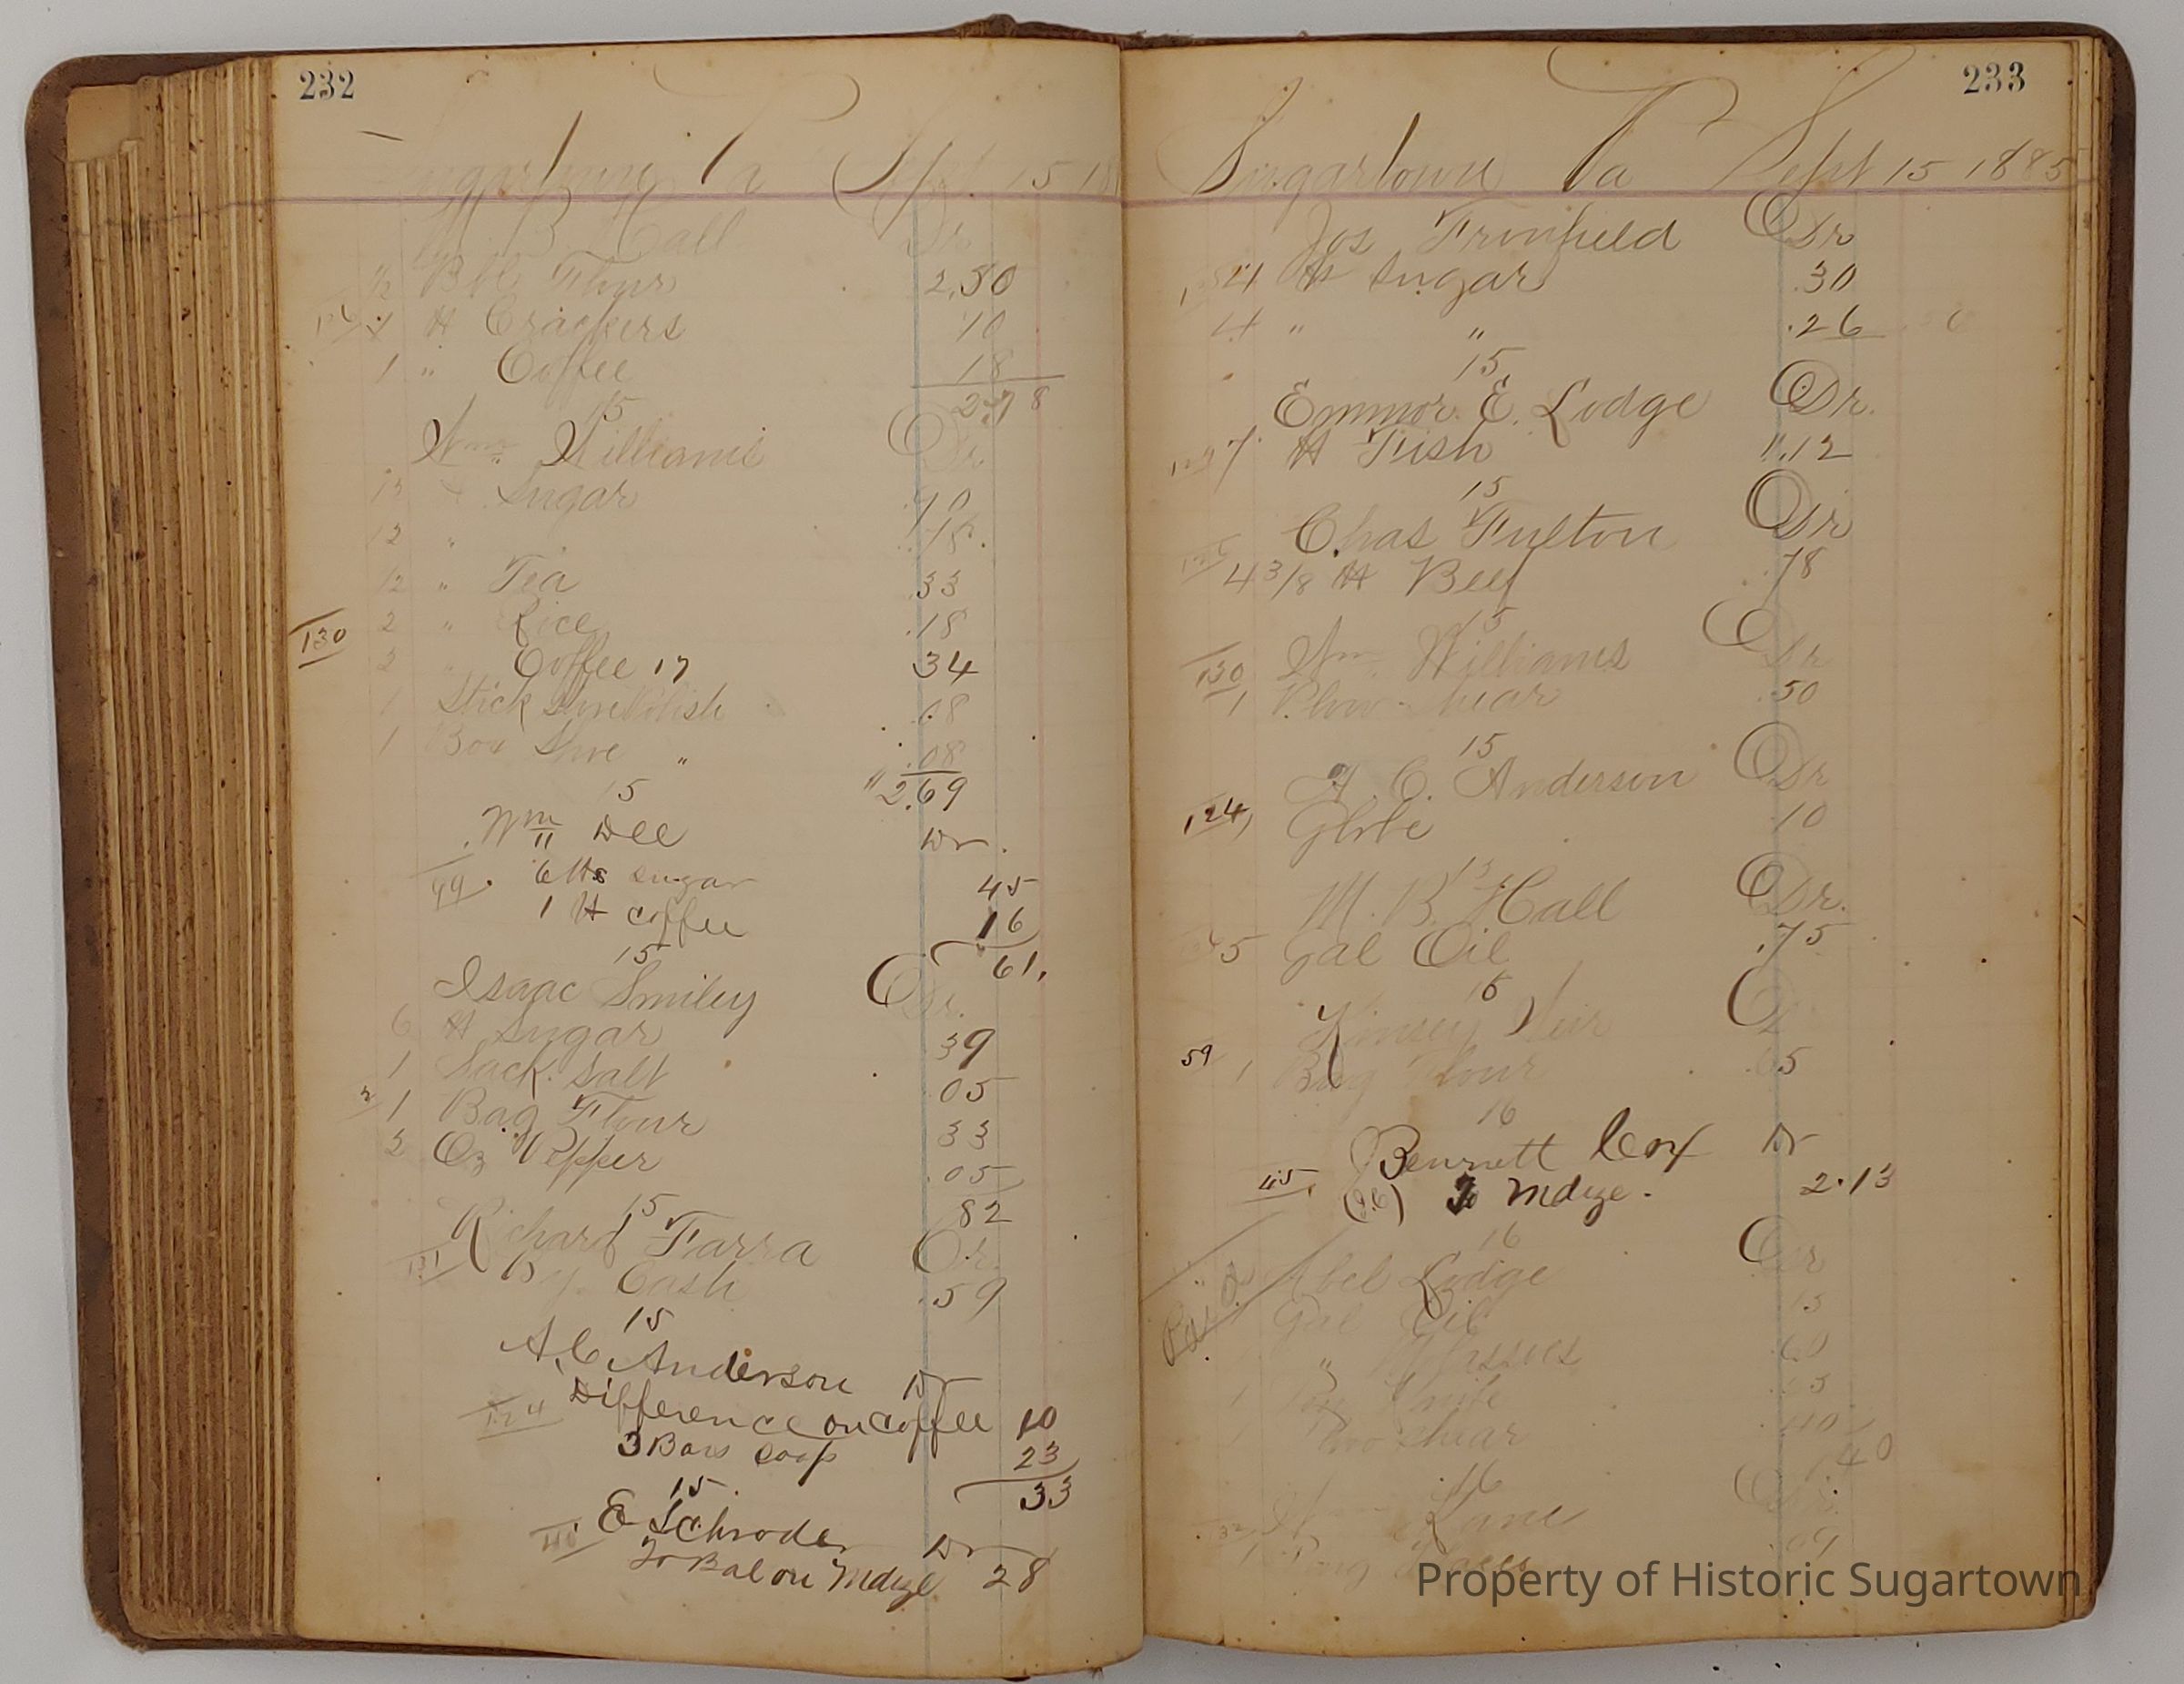 232
Sugartown Pa Sept 15 18
M. B. Hall Dr
½ Bbl Flour 2.50
℔ Crackers 10
1 " Coffee 18
2.78
15
Wm Williams Dr.
Sugar .90
"
" Tea .33
130 2 " Rice .18
2 Coffee 17 34
1 Stick Shoe Polish .08
1 Box Shoe " .08
" 2.69
15
Wm Dee Dr.
99 6 ℔s sugar 45
1 ℔ coffee 16
61
15
Isaac Smiley Dr.
6 ℔ Sugar 39
1 Sack Salt 05
1 Bag Flour 33
2 Oz Pepper .05
82
15
Richard Farra Cr.
131 By Cash .59
15
A. C. Anderson Dr
124 Difference on coffee 10
3 Bars soap 23
33
15.
E Schroder Dr
To Bal on Mdize 28
233
Sugartown Pa Sept 15 1885
Jos Dr
4 ℔ Sugar .30
4 " " .26
15
Emmor E. Lodge Dr.
℔ Fish ".12
15
Chas Fulton Dr
4 3/8 ℔ Beef .78
15
Wm. Williams Dr
130 1 Plow shear .50
15
A. C. Anderson Dr
124 Globe 10
15
M. B. Hall Dr.
5 Gal Oil .75
15
Kinsey Dr
59 1 Bag Flour .65
16
Bennett Cox Dr
45 (96) To Mdize. 2.13
16
Paid Abel Lodge Dr
Gal Oil 15
"
Plow shear 40
1.40
16
Lane Dr.
Property of Historic Sugartown